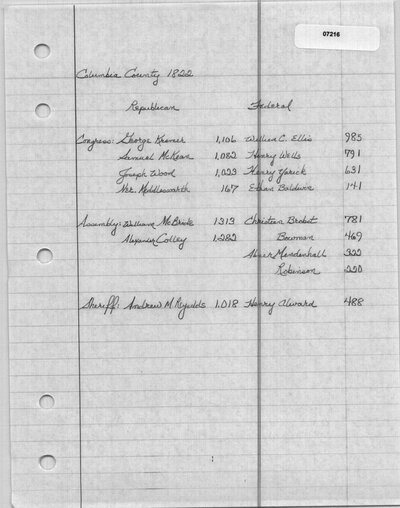 07216
Columbia County 1822
Republican Federal
Congress: George Kremer 1,106 William C. Ellis 985
Samuel McKean 1,082 Henry Wells 791
Joseph Wood 1,023 Henry Yarick 631
Ner. Middlesworth 167 Ethan Baldwin 141
Assembly: William McBride 1313 Christian Brobst 781
Alexander Colley 1,282 Bowman 469
Abner Mendenhall 322
Robinson 220
Sheriff: Andrew McReynolds 1,018 Henry Alward 488